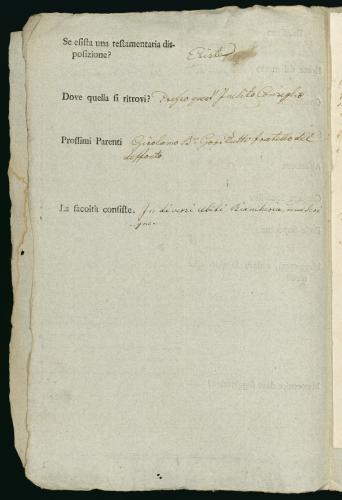 Se esista una testamentaria dis-
posizione? Esiste
Dove quella si ritrovi? Presso quest' Inclito Consiglio
Prossimi Parenti Girolamo Bn. fratello del
defonto
La facoltà consiste. In diversi abiti Biancheria